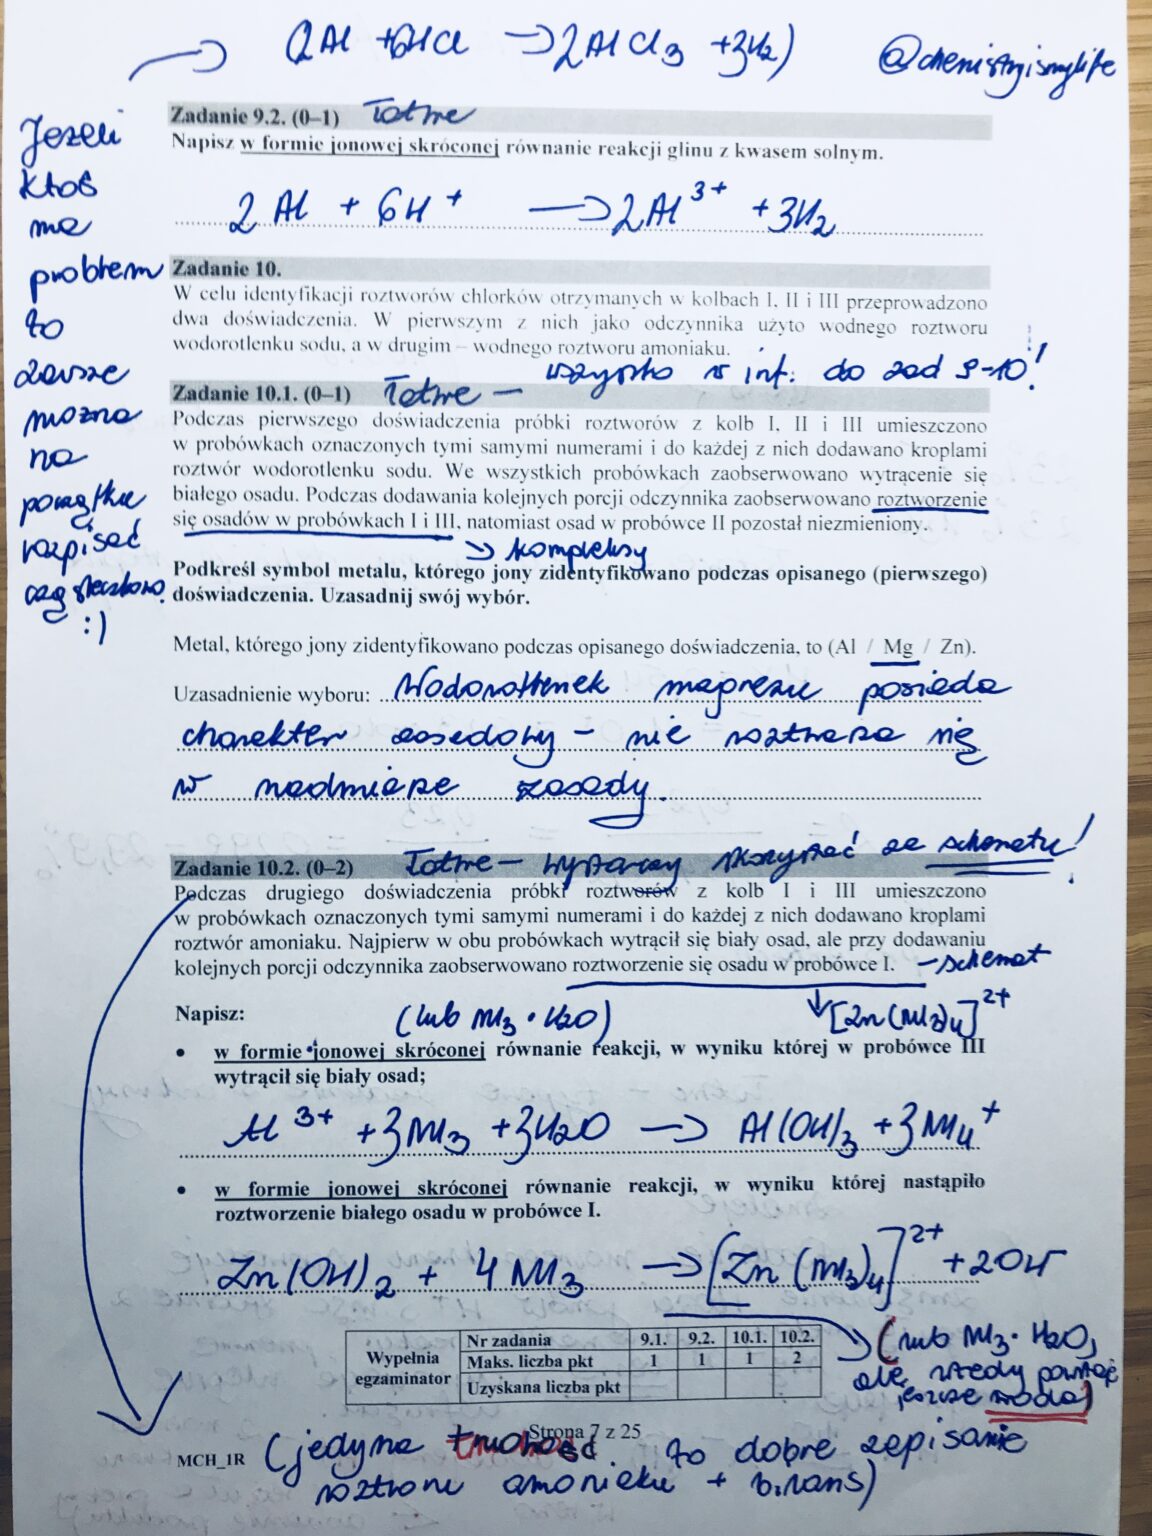 → (2Al + 6HCl → 2AlCl3 + 3H2)
@chemistryismylife
Jeżeli
ktoś
ma
problem
to
zawsze
można
na
początku
rozpisać
cząsteczkowo
:)
Zadanie 9.2. (0–1) Łatwe
Napisz w formie jonowej skróconej równanie reakcji glinu z kwasem solnym.
2Al + 6H+ → 2Al3+ + 3H2
Zadanie 10.
W celu identyfikacji roztworów chlorków otrzymanych w kolbach I, II i III przeprowadzono
dwa doświadczenia. W pierwszym z nich jako odczynnika użyto wodnego roztworu
wodorotlenku sodu, a w drugim – wodnego roztworu amoniaku.
Zadanie 10.1. (0–1) Łatwe – wszystko w inf. do zad 9-10!
Podczas pierwszego doświadczenia próbki roztworów z kolb I, II i III umieszczono
w probówkach oznaczonych tymi samymi numerami i do każdej z nich dodawano kroplami
roztwór wodorotlenku sodu. We wszystkich probówkach zaobserwowano wytrącenie się
białego osadu. Podczas dodawania kolejnych porcji odczynnika zaobserwowano roztworzenie
się osadów w probówkach I i III, natomiast osad w probówce II pozostał niezmieniony.
→ kompleksy
Podkreśl symbol metalu, którego jony zidentyfikowano podczas opisanego (pierwszego)
doświadczenia. Uzasadnij swój wybór.
Metal, którego jony zidentyfikowano podczas opisanego doświadczenia, to (Al / Mg / Zn).
Uzasadnienie wyboru: Wodorotlenek magnezu posiada
charakter zasadowy – nie roztwarza się
w nadmiarze zasady.
Zadanie 10.2. (0–2) Łatwe – wystarczy skorzystać ze schematu!
Podczas drugiego doświadczenia próbki roztworów z kolb I i III umieszczono
w probówkach oznaczonych tymi samymi numerami i do każdej z nich dodawano kroplami
roztwór amoniaku. Najpierw w obu probówkach wytrącił się biały osad, ale przy dodawaniu
kolejnych porcji odczynnika zaobserwowano roztworzenie się osadu w probówce I. – schemat
Napisz: (lub NH3 • H2O) ↓ [Zn(NH3)4]2+
• w formie jonowej skróconej równanie reakcji, w wyniku której w probówce III
wytrącił się biały osad;
Al3+ + 3NH3 + 3H2O → Al(OH)3 + 3NH4+
• w formie jonowej skróconej równanie reakcji, w wyniku której nastąpiło
roztworzenie białego osadu w probówce I.
Zn(OH)2 + 4NH3 → [Zn(NH3)4]2+ + 2OH-
→ (lub NH3 • H2O,
ale wtedy powstaje
jeszcze woda)
Wypełnia egzaminator
Nr zadania 9.1. 9.2. 10.1. 10.2.
Maks. liczba pkt 1 1 1 2
Uzyskana liczba pkt
Strona 7 z 25
MCH_1R
(jedyna trudność to dobre zapisanie
roztworu amoniaku + bilans)